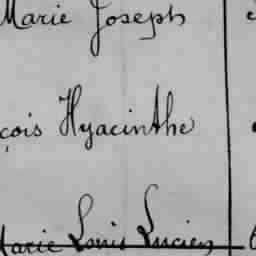 Marie Joseph
çois Hyacinthe
Marie Louis Lucien